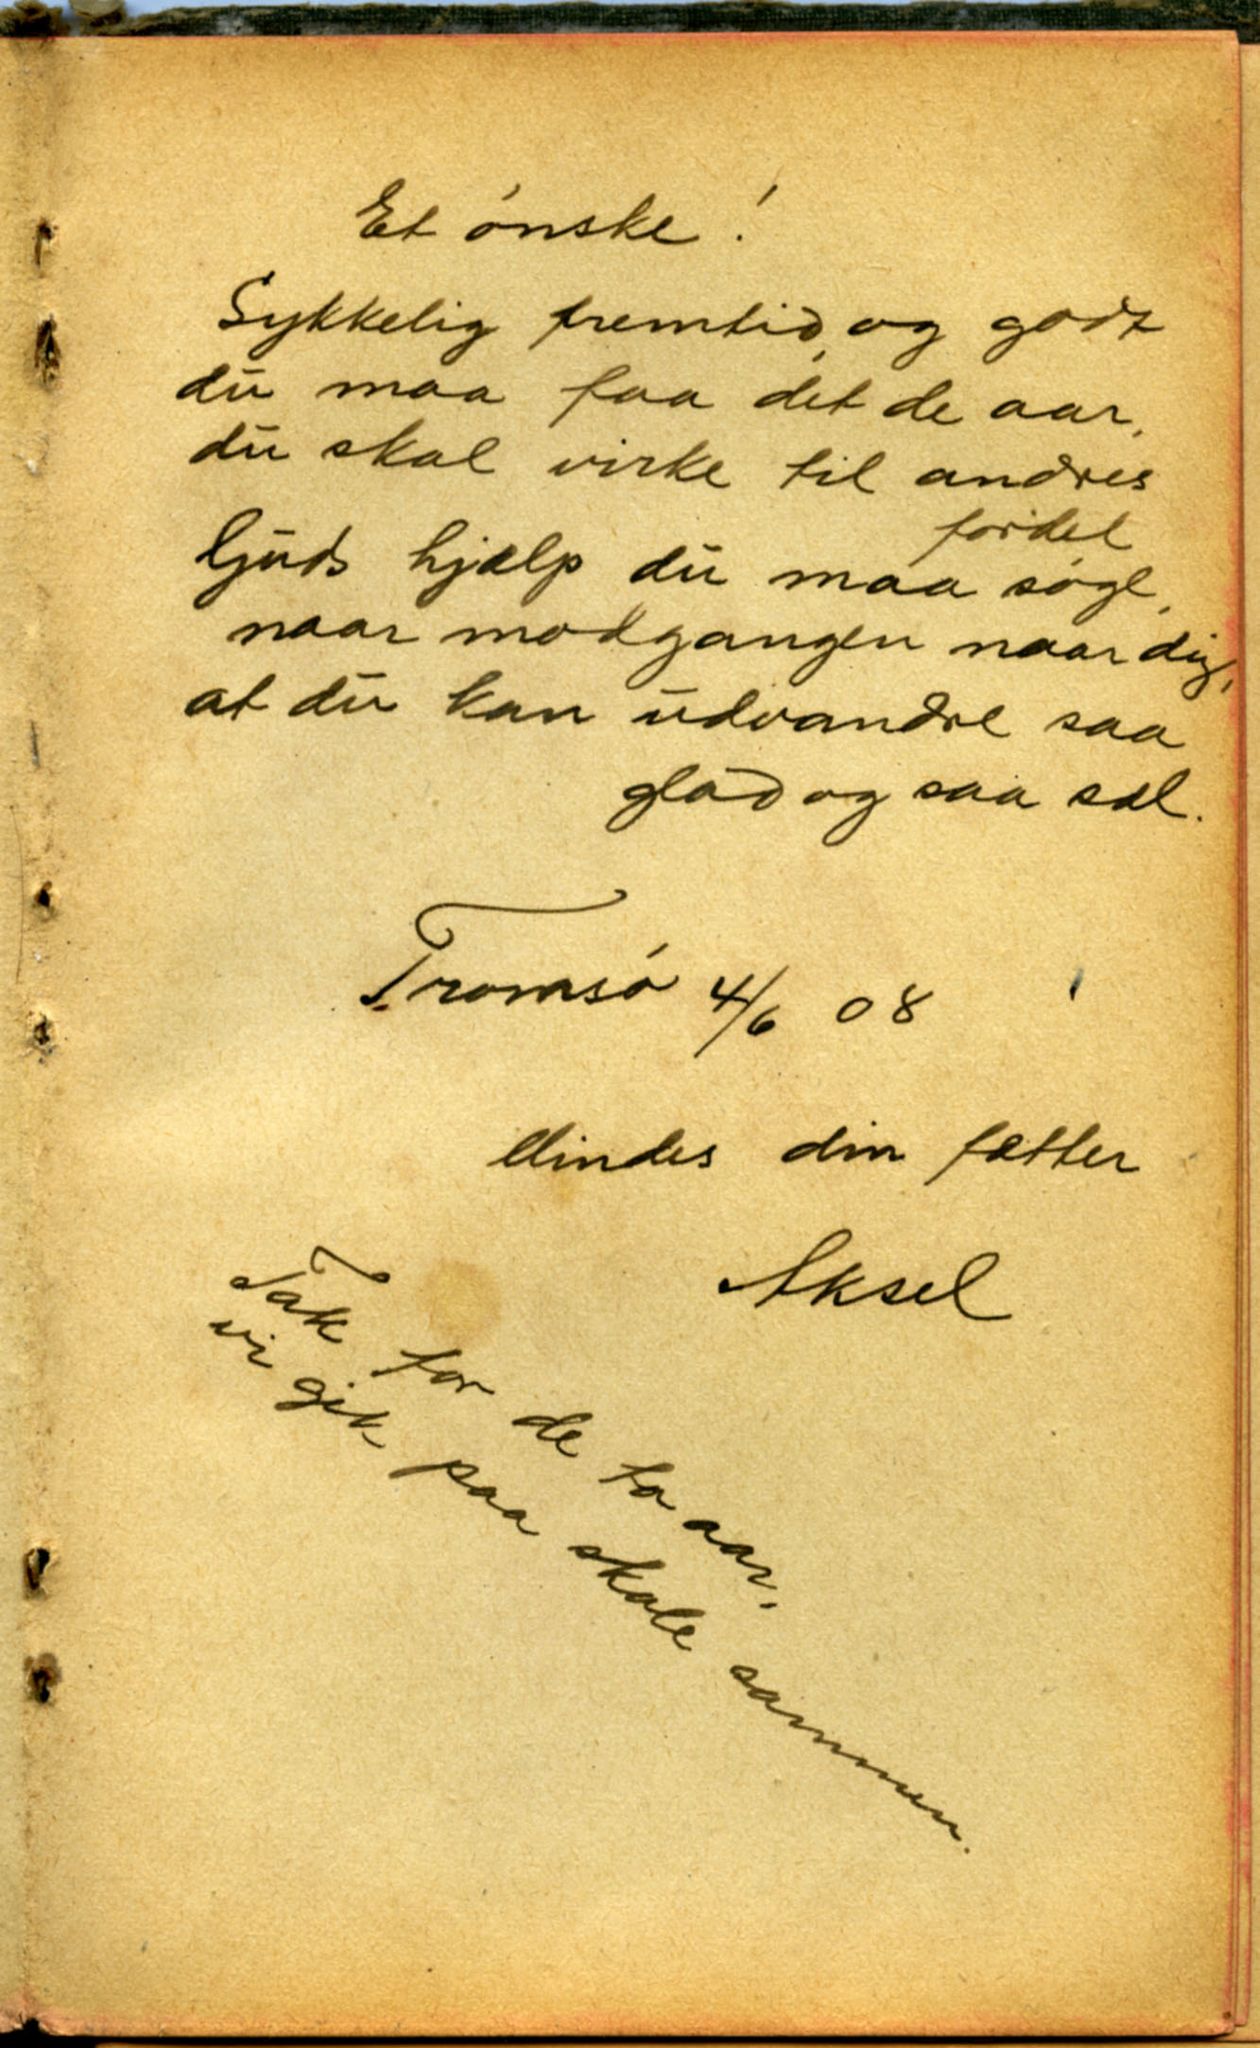 Et ønske!
Lykkelig fremtid, og godt
du maa faa det de aar,
du skal virke til andres
fordel
Guds hjælp du maa søge,
naar modgangen naar dig,
at du kan udvandre saa
glad og saa sæl.
Tromsø 4/6 08
Mindes din fætter
Aksel
Tak for de to aar,
vi gik paa skole sammen.